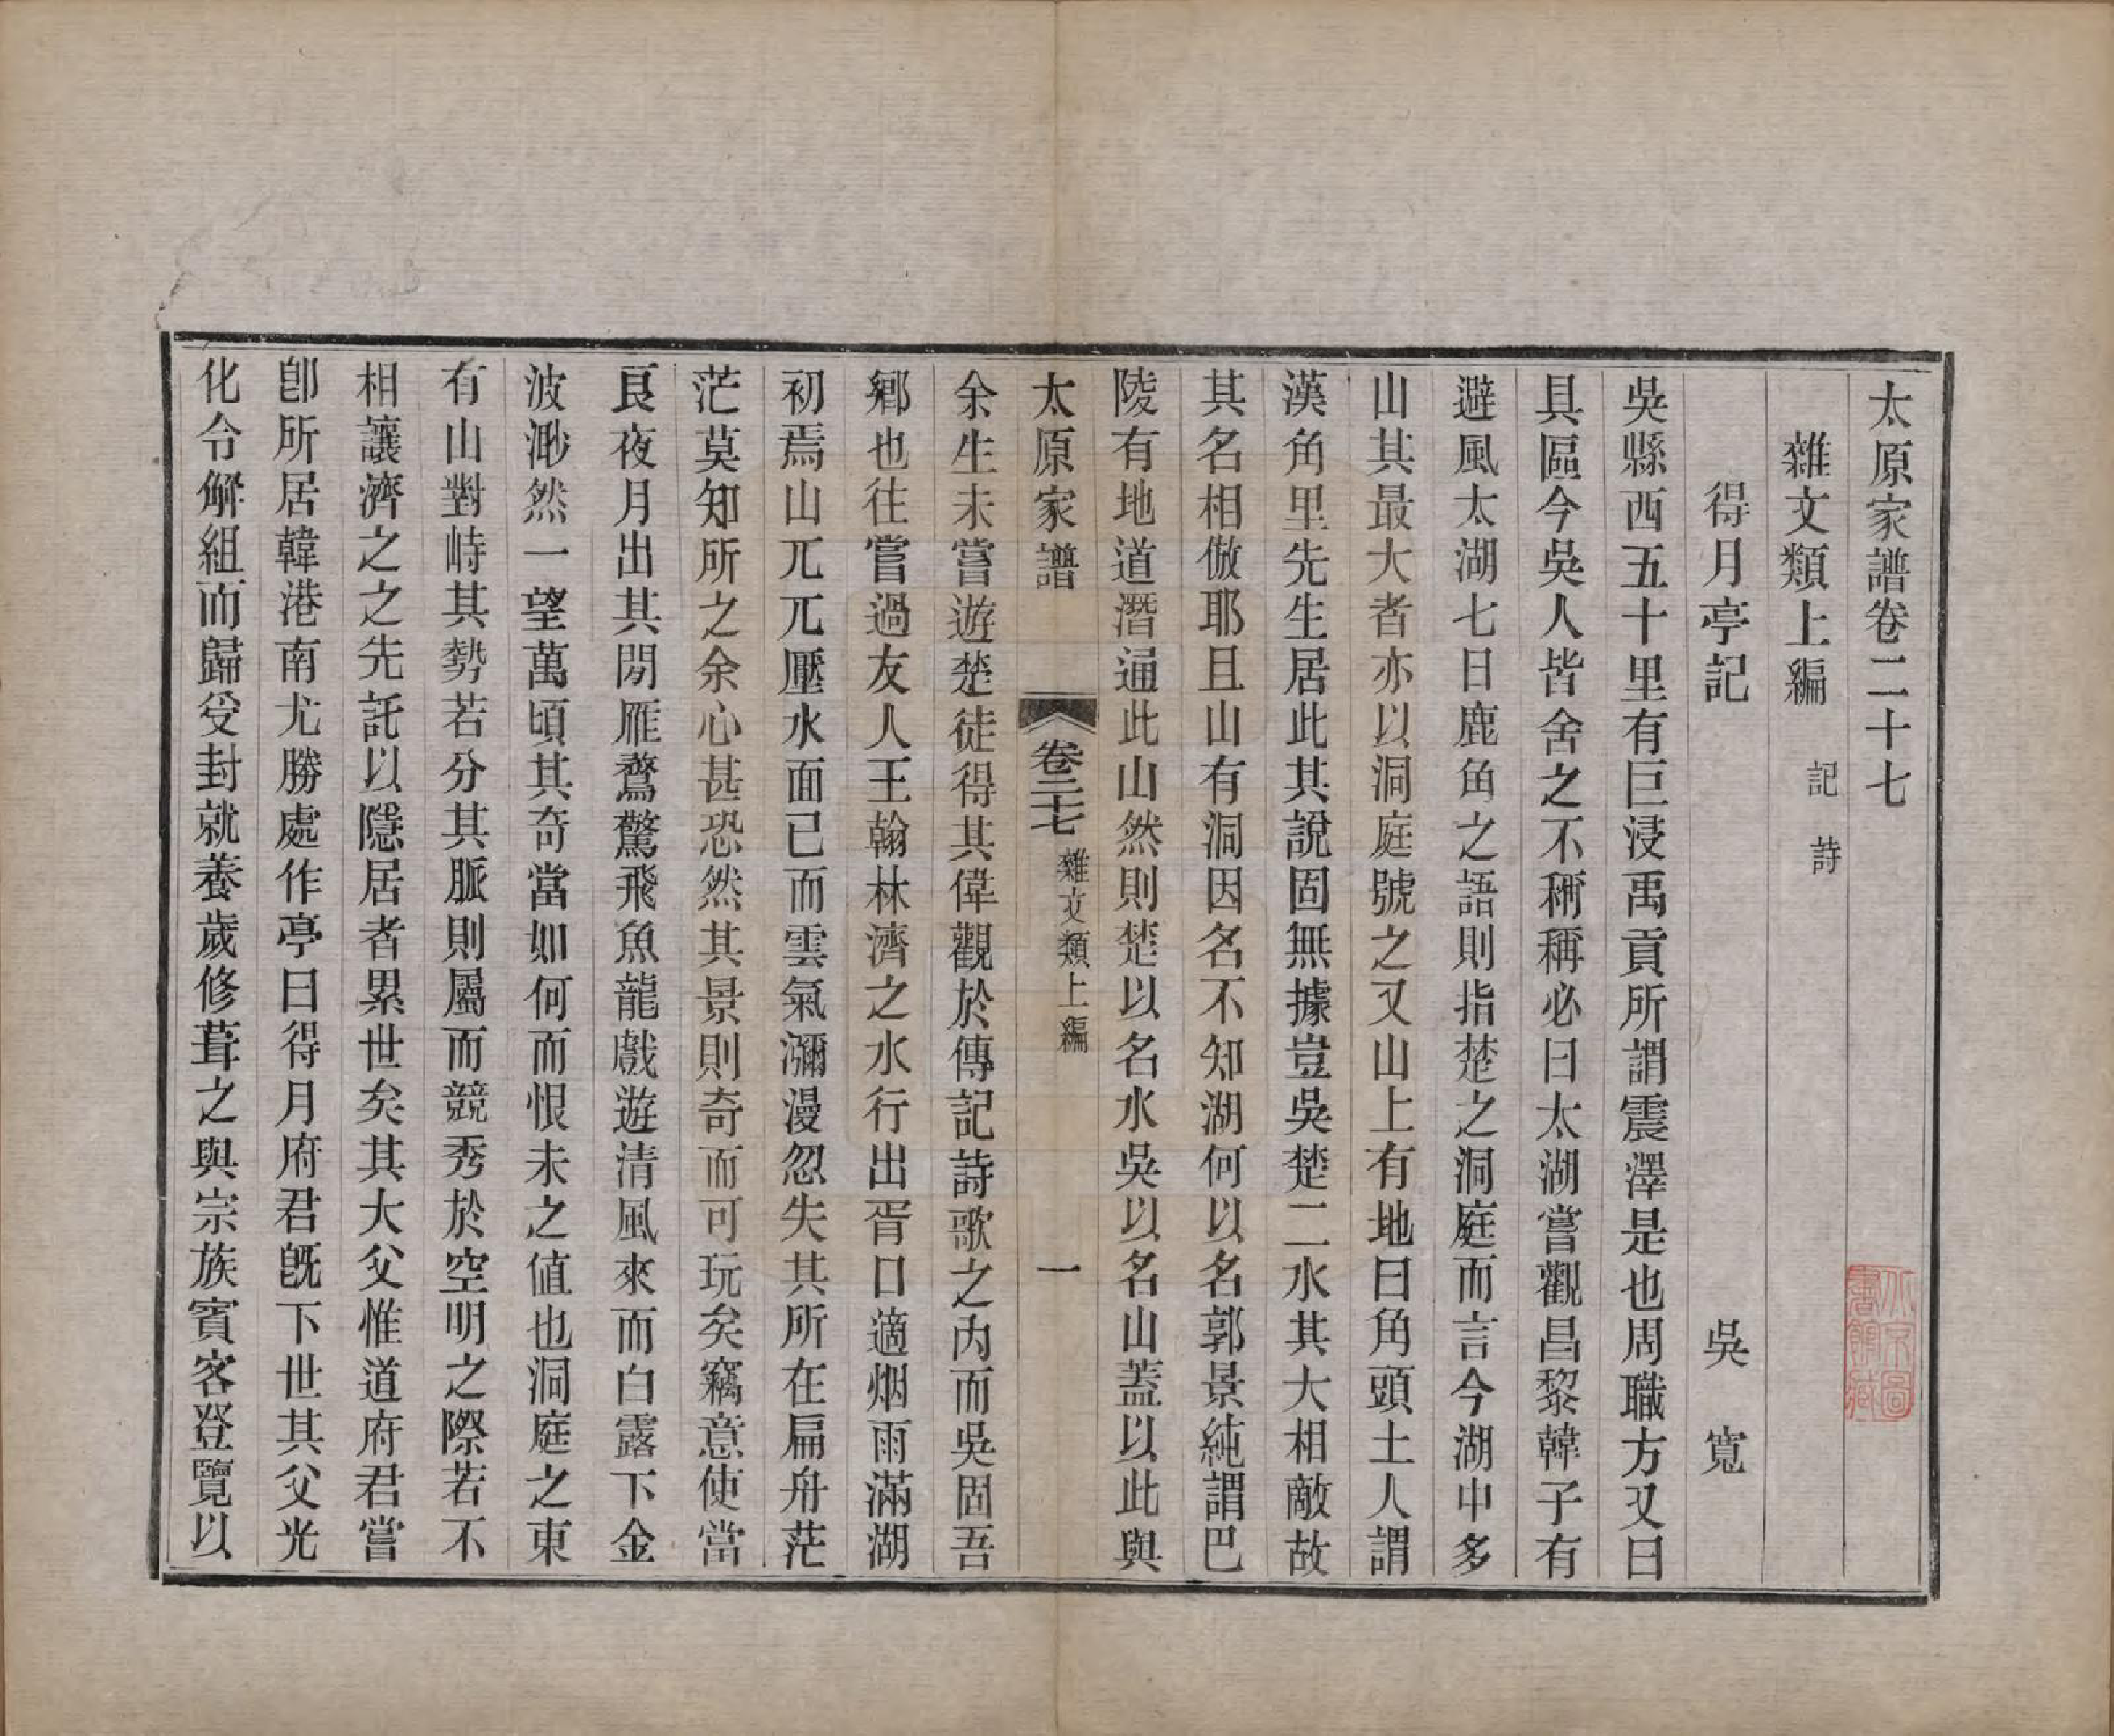 太原家譜卷二十七
雜文類上編　記　詩
得月亭記　吳　寬
吳縣西五十里有巨浸禹貢所謂震澤是也周職方又曰
具區今吳人皆舍之不稱稱必曰太湖嘗觀昌黎韓子有
避風太湖七日鹿角之語則指楚之洞庭而言今湖中多
山其最大者亦以洞庭號之又山上有地曰角頭土人謂
漢角里先生居此其說固無據豈吳楚二水其大相敵故
其名相倣耶且山有洞因名不知湖何以名郭景純謂巴
陵有地道潛通此山然則楚以名水吳以名山蓋以此與
太原家譜　卷二十七　雜文類上編　一
余生未嘗遊楚徒得其偉觀於傳記詩歌之內而吳固吾
鄉也往嘗過友人王翰林濟之水行出胥口適烟雨滿湖
初焉山兀兀壓水面已而雲氣瀰漫忽失其所在扁舟茫
茫莫知所之余心甚恐然其景則奇而可玩矣竊意使當
良夜月出其閒雁鶩驚飛魚龍戲遊清風來而白露下金
波渺然一望萬頃其奇當如何而恨未之値也洞庭之東
有山對峙其勢若分其脈則屬而競秀於空明之際若不
相讓濟之之先託以隱居者累世矣其大父惟道府君嘗
卽所居韓港南尤勝處作亭曰得月府君旣下世其父光
化令解組而歸受封就養歲修葺之與宗族賓客登覽以